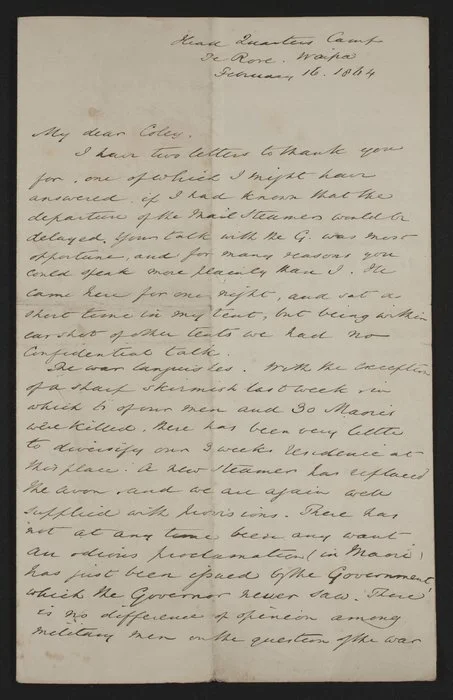 Head Quarters Camp
Te Rore. Waipa
February 16. 1864
My dear Coley.
I have two letters to thank you
for, one of which I might have
answered if I had known that the
departure of the Mail Steamer would be
delayed. Your talk with the G. was most
opportune, and for many reasons you
could speak more plainly than I. He
came here for one night, and sat a
short time in my tent, but being within
earshot of other tents we had no
confidential talk.
The war languishes. With the exception
of a sharp skirmish last week in
which 6 of our men and 30 Maoris
were killed, there has been very little
to diversify our 3 weeks residence at
this place. A new steamer has replaced
the Avon, and we are again well
supplied with provisions. There has
not at any time been any want.
An odious proclamation (in Maori)
has just been issued by the Government
which the Governor never saw. There
is no difference of opinion among
military men on the question of the war